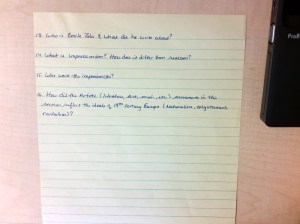 13. Who is Emile Zola? What did he write about?
14. What is impressionism? How does it differ from realism?
15. Who were the impressionists?
16. How did the Artistic (literature, art, music, etc.) movements in this
section reflect the ideals of 19th Century Europe (Nationalism, enlightenment,
)?